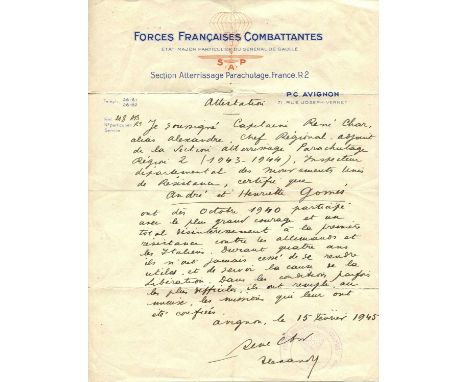 FORCES FRANÇAISES COMBATTANTES
ETAT MAJOR PARTICULIER DU GENERAL DE GAULLE
S A P
Section Atterrissage Parachutage, France, R2
Téleph. 26-81
26-82
P.C. AVIGNON
71 RUE JOSEPH-VERNET
Attestation
Je soussigné Capitaine René Char,
alias Alexandre Chef Régional adjoint
de la Section Atterrissage Parachutage
Région 2 (1943-1944), Inspecteur
départemental des Mouvements Unis
de Résistance, certifie que
André et Henriette Gomès
ont dès Octobre 1940 participé
avec le plus grand courage et un
total désintéressement à la première
résistance contre les allemands et
les Italiens. Durant quatre ans
ils n'ont jamais cessé de se rendre
utiles et de servir la cause de la
Libération. Dans les conditions parfois
les plus difficiles, ils ont rempli, au
mieux, les missions qui leur ont
été confiées.
Avignon, le 15 février 1945
René Char
Alexandre